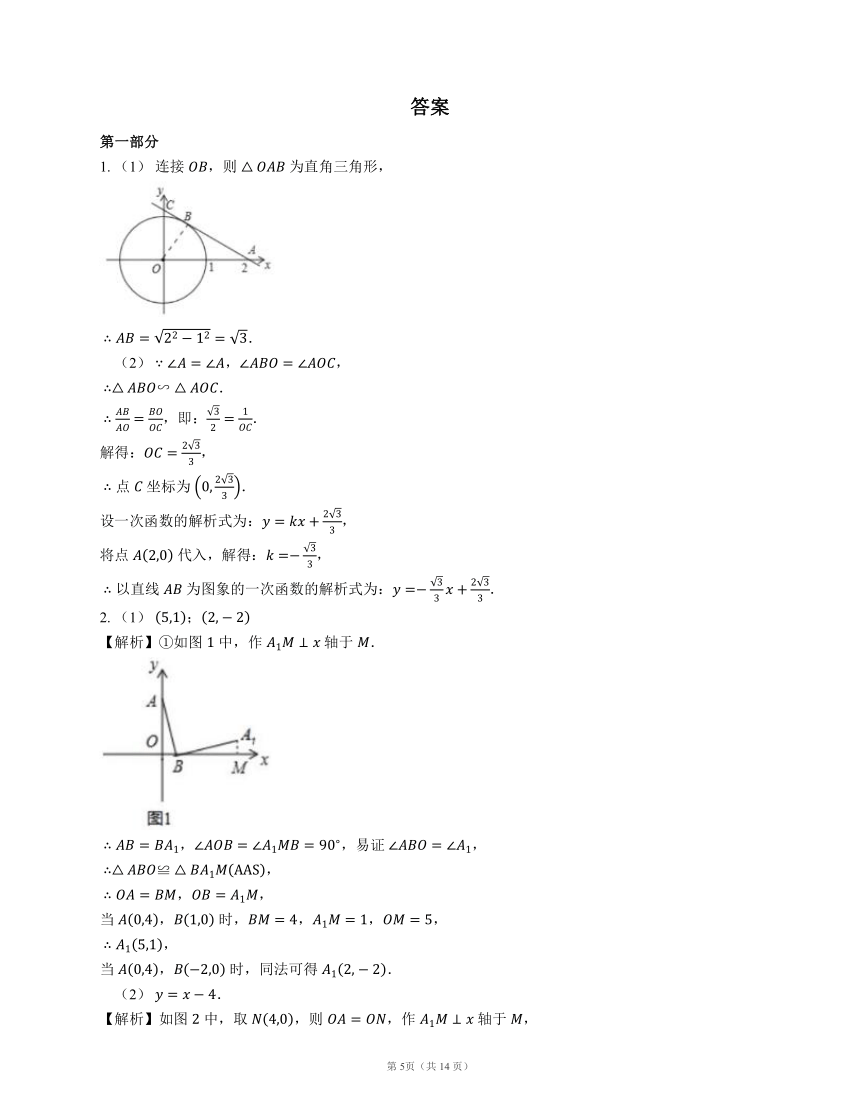 答案
第一部分
1. （1） 连接 OB，则 △ OAB 为直角三角形，
y
C
B
A
O
1
2
x
∴ AB = √(2² − 1²) = √3.
（2） ∵ ∠A = ∠A，∠ABO = ∠AOC，
∴△ ABO∽ △ AOC.
∴ AB/AO = BO/OC，即：√3/2 = 1/OC.
解得：OC = 2√3/3，
∴ 点 C 坐标为 (0, 2√3/3).
设一次函数的解析式为：y = kx + 2√3/3，
将点 A(2,0) 代入，解得：k =− √3/3，
∴ 以直线 AB 为图象的一次函数的解析式为：y =− √3/3 x + 2√3/3.
2. （1） (5,1)；(2, − 2)
【解析】①如图 1 中，作 A₁M ⊥ x 轴于 M.
y
A
O
A₁
B
M
x
图1
∴ AB = BA₁，∠AOB = ∠A₁MB = 90°，易证 ∠ABO = ∠A₁，
∴△ ABO≌ △ BA₁M(AAS)，
∴ OA = BM，OB = A₁M，
当 A(0,4)，B(1,0) 时，BM = 4，A₁M = 1，OM = 5，
∴ A₁(5,1)，
当 A(0,4)，B(−2,0) 时，同法可得 A₁(2, − 2).
（2） y = x − 4.
【解析】如图 2 中，取 N(4,0)，则 OA = ON，作 A₁M ⊥ x 轴于 M，
第 5页（共 14 页）